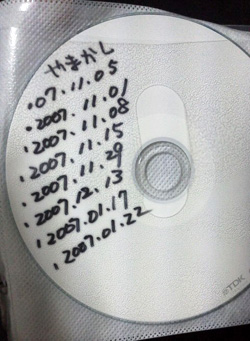 やまかし
.07.11.05
.2007.11.01
.2007.11.08
.2007.11.15
.2007.11.29
.2007.12.13
.2007.01.17
.2007.01.22
TDK